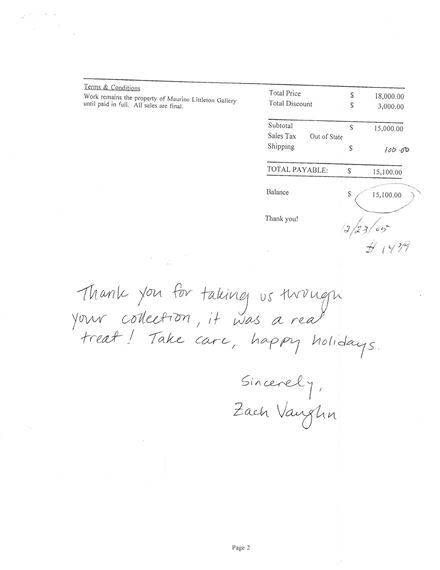 Terms & Conditions
Work remains the property of Maurine Littleton Gallery
until paid in full. All sales are final.
Total Price $ 18,000.00
Total Discount $ 3,000.00
Subtotal $ 15,000.00
Sales Tax Out of State
Shipping $ 100.00
TOTAL PAYABLE: $ 15,100.00
Balance $ 15,100.00
Thank you!
12/23/05
# 1439
Thank you for taking us through
your collection, it was a real
treat! Take care, happy holidays.
Sincerely,
Zach Vaughn
Page 2